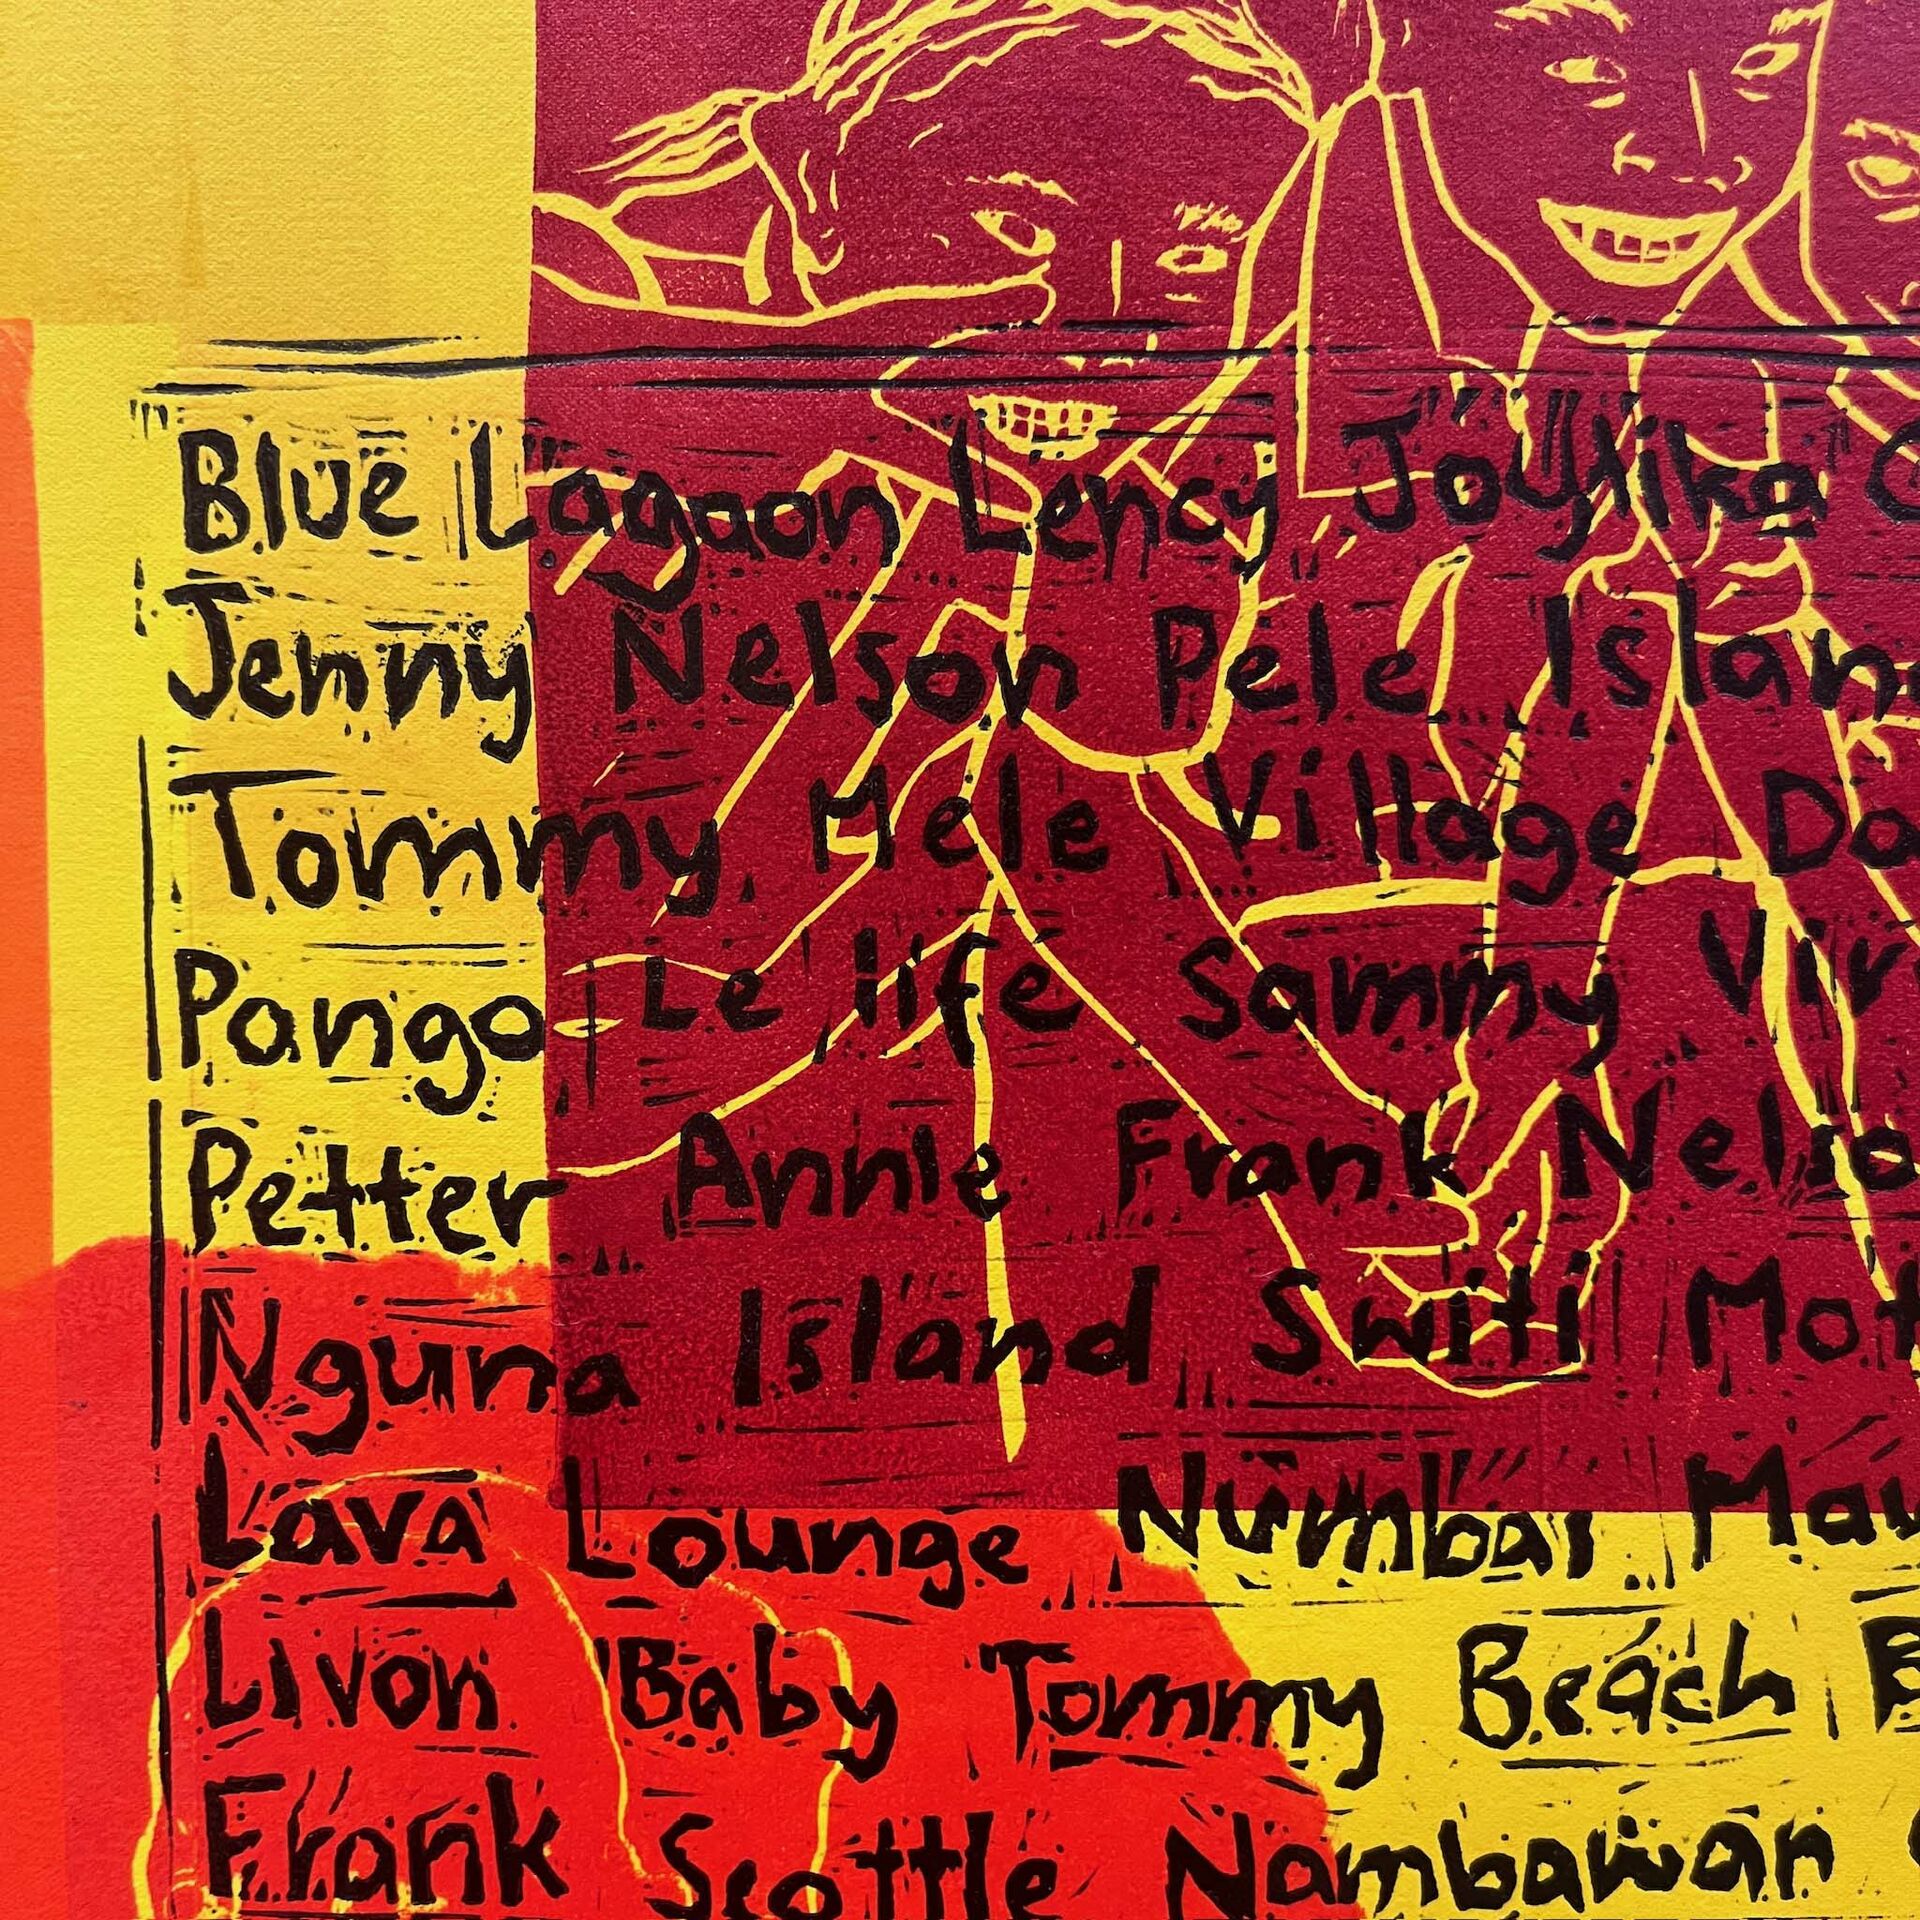 Blue Lagoon Lency Joylika
Jenny Nelson Pele Island
Tommy Mele Village Do
Pango Le life Sammy Vir
Petter Annie Frank Nelso
Nguna Island Switi Mot
Lava Lounge Numbai Mau
Livon Baby Tommy Beach B
Frank Scottle Nambawan